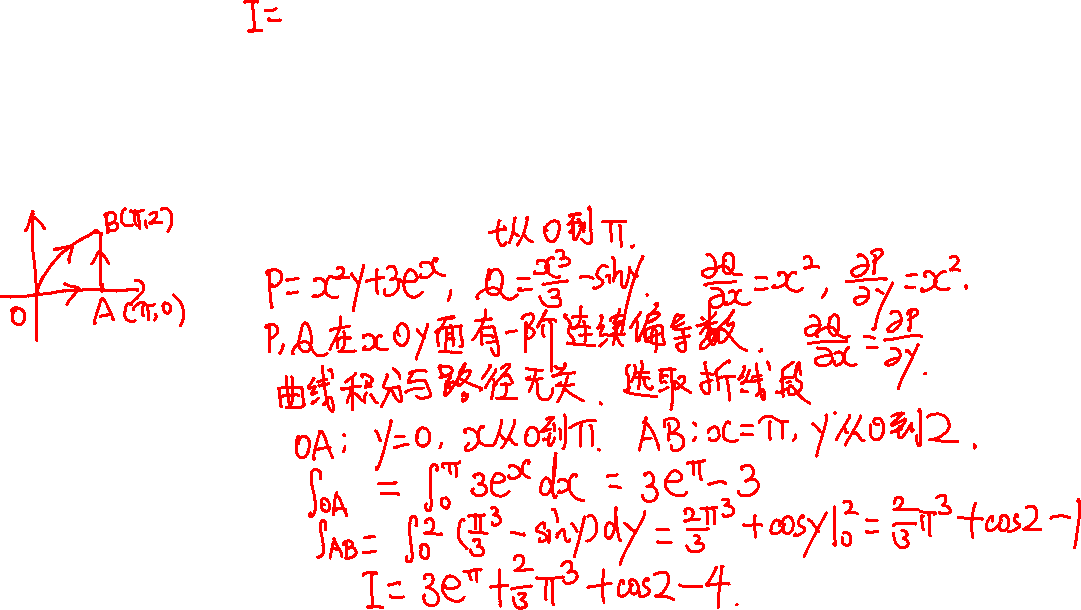 I=
B(π,2)
O
A(π,0)
t从0到π.
P=x²y+3eˣ, Q=x³/3-siny. ∂Q/∂x=x², ∂P/∂y=x².
P,Q在xOy面有一阶连续偏导数. ∂Q/∂x=∂P/∂y.
曲线积分与路径无关. 选取折线段
OA: y=0, x从0到π. AB: x=π, y从0到2.
∫OA = ∫₀^π 3eˣdx = 3e^π-3
∫AB= ∫₀² (π³/3-siny)dy = 2π³/3+cosy|₀² = 2/3π³+cos2-1
I=3e^π+2/3π³+cos2-4.